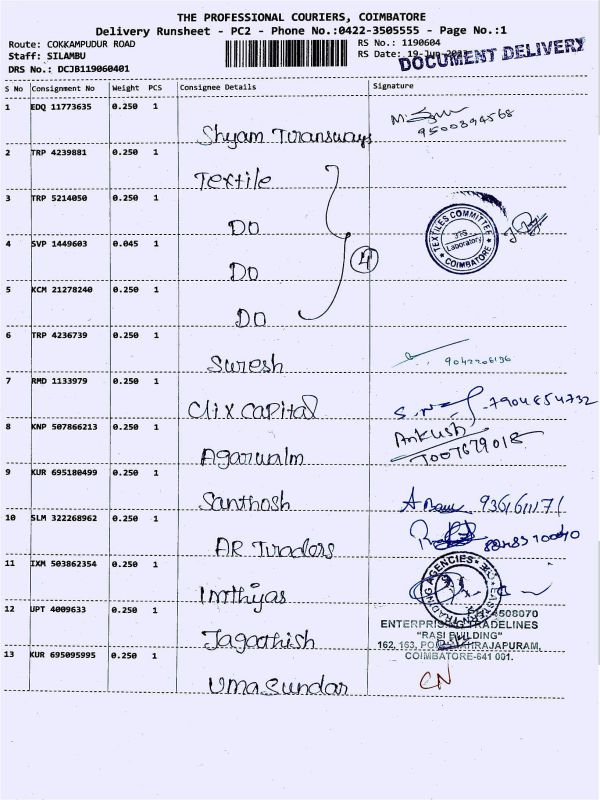 THE PROFESSIONAL COURIERS, COIMBATORE
Delivery Runsheet - PC2 - Phone No.:0422-3505555 - Page No.:1
Route: COKKAMPUDUR ROAD
Staff: SILAMBU
DRS No.: DCJB119060401
RS No.: 1190604
RS Date: 19-Jun-
DOCUMENT DELIVERY
S No Consignment No Weight PCS Consignee Details Signature
1 EDQ 11773635 0.250 1
Shyam Transways
9500394568
2 TRP 4239881 0.250 1
Textile
3 TRP 5214050 0.250 1
DO
TEXTILES COMMITTEE
Laboratory
COIMBATORE
4 SVP 1449603 0.045 1
DO
4
5 KCM 21278240 0.250 1
DO
6 TRP 4236739 0.250 1
Suresh
9042206196
7 RMD 1133979 0.250 1
Clix Capital
7904854732
8 KNP 507866213 0.250 1
Agarwalm
Ankush
7007679018
9 KUR 695180499 0.250 1
Santhosh
10 SLM 322268962 0.250 1
AR Traders
11 IXM 503862354 0.250 1
Imthiyas
AGENCIES
TRADING
12 UPT 4009633 0.250 1
Jagathish
4508070
ENTERPRIS TRADELINES
"RASI BUILDING"
162, 163, RAJAPURAM,
COIMBATORE-641 001.
13 KUR 695095995 0.250 1
Umasundar
CN